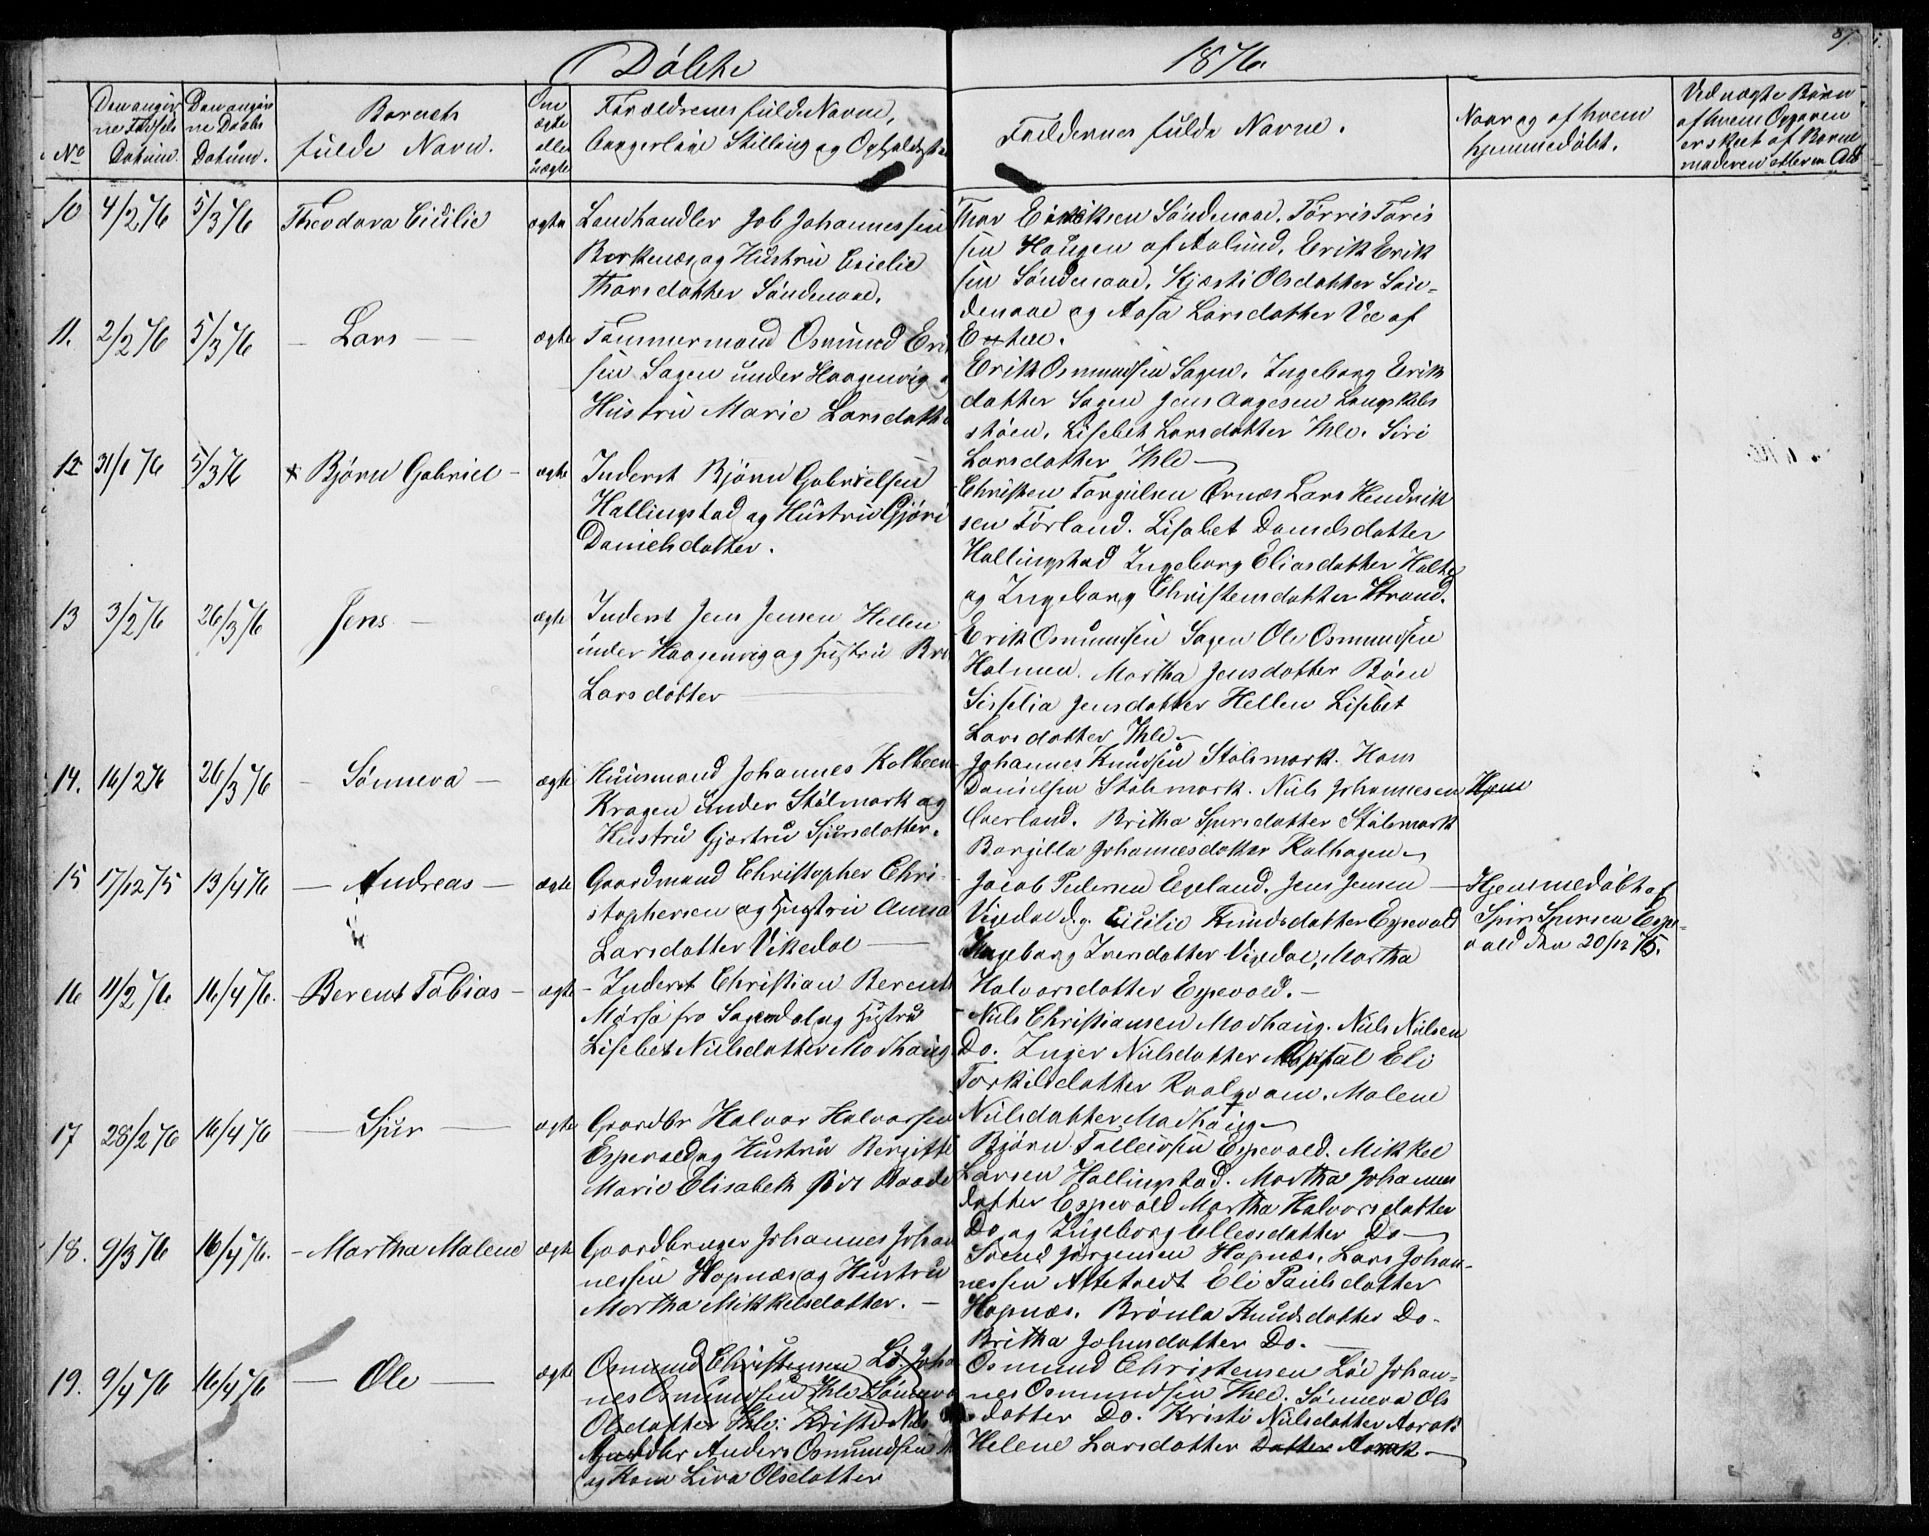 Döbte 1876. 87.
No
Den angiv
ne Födsels
Datum.
Den angiv
ne Daabs
Datum.
Barnets
fulde Navn.
Om
ægte
eller
uægte
Forældrenes fulde Navne,
Stilling og Opholdssted
Faddernes fulde Navne.
Naar og af hvem
hjemmedöbt.
Ved uægte Börn
af hvem Opgaven
er skeet af Barne
moderen eller
10 4/2 76 5/3 76 Theodora Cicilie ægte
Landhandler Job Johannessen
Borkenæs og Hustru Cicilie
Thorsdatter Söndenaae.
Thor Eriksen Söndenaae. Törris Toris
sen Haugen af Aalund. Erik Erik
sen Söndenaae. Kjæsti Olsdatter Sön-
denaae og Aasa Larsdatter Vee af
Extne.
11. 2/2 76 5/3 76 – Lars – ægte
Tømmermand Osmund Eri
sen Sagen under Haagenvig
Hustru Marie Larsdatte
Erik Osmundsen Sagen. Ingeborg Erik
datter Sagen Jens Aagesen Langskibs
stöen. Lisebet Larsdatter Thle. Siri
Larsdatter Thle –
12 31/1 76 5/3 76 × Björn Gabriel – ægte
Inderst Björn Gabrielsen
Hallingstad og Hustru Gjöri
Danielsdatter.
Christen Torgilsen Ornæs Lars Hendrik
sen Förland. Lisabet Danielsdatter
Hallingstad Ingeborg Eliasdatter Holte
og Ingeborg Christensdatter Strand.
13 3/2 76 26/3 76 Jens – ægte
Inderst Jens Jensen Hellen
under Haagenvig og Hustru Bri
Larsdatter
Erik Osmundsen Sagen Ole Osmundsen
Holmen. Martha Jensdatter Böen
Sisselia Jensdatter Hellen Lisebet
Larsdatter Thle –
14. 16/2 76 26/3 76 – Sönneva – ægte
Huusmand Johannes Kolbeen
Kragen under Stölmark og
Hustru Gjertru Sjursdatter.
Johannes Knudsen Stölsmark. Hans
Danielsen Stölsmark. Niels Johannesen
Overland. Britha Sjursdatter Stölsmark
Borgilla Johannesdatter Kalhagen –
Hjem
15 17/12 75 13/4 76 – Andreas – ægte
Gaardmand Christopher Chri-
stophersen og Hustru Anna
Larsdatter Vikedal –
Jacob Pedersen Egeland. Jens Jensen –
Vigedal Cicilie Knudsdatter Espevold
Ingeborg Iversdatter Vigedal. Martha
Halvorsdatter Espevold. –
Hjemmedöbt af
Sjur Sjursen Espe-
vold den 20/12 75.
16 11/2 76 16/4 76. – Berent Tobias – ægte
– Inderst Christian Berent
fra Sogndal og Hustru
Lisebet Nielsdatter Modhaug
– Niels Christiansen Modhaug. Niels Nielsen
Do. Inger Nielsdatter Opsal Eli
Torkildsdatter Raalqvam. Malene
Nielsdatter Modhaug –
17 28/2 76 16/4 76 – Sjur – ægte
Gaardbr Halvor Halvorsen
Espevold og Hustru Bergitte
Marie Elisabeth
Björn Tolleivsen Espevold. Mikkel
Larsen Hallingstad. Martha Johannes
datter Espevold Martha Halvorsdatter
Do og Ingeborg Ellesdatter Do –
18. 9/3 76 16/4 76. – Martha Malene ægte
Gaardbruger Johannes Johan
nessen Hopnæs og Hustru
Martha Mikkelsdatter. –
Svend Jörgensen Hopnæs. Lars Johan-
nessen Attetvedt Eli Paulsdatter
Hopnæs. Brönla Knudsdatter Do.
Britha Johnsdatter Do.
19. 9/4 76 16/4 76 – Ole – ægte
Osmund Christensen Lö Joha
nes Osmundsen Thle Sönneva
Olsdatter Thle: Kristi Nils
Gaardbr Anders Osmundsen
og Kone Siva Olsdatter
Osmund Christensen Löe Johan-
nes Osmundsen Thle. Sönneva Ols
datter Do. Kristi Nielsdatter Aarak
Helene Larsdatter Datter Aarak. –